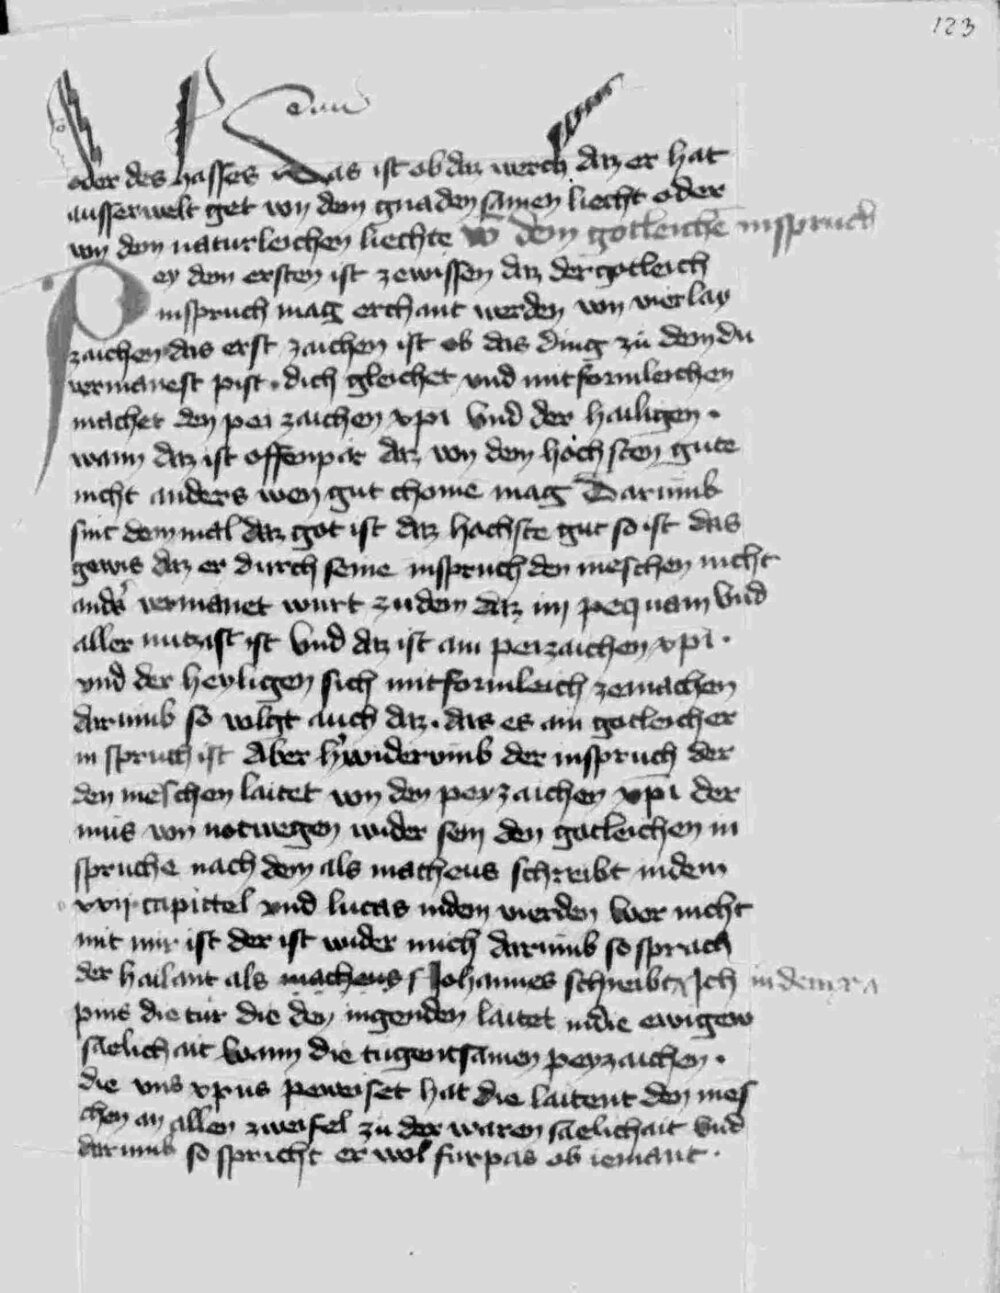 123
oder des hasses was ist ob daz werch daz er hat
ausserwelt get von dem gnadensamen liecht oder
von dem naturleichen liechte vō dem gotleichē inspruch
Pey dem ersten ist zewissen daz der gotleich
inspruch mag erchant werden von vierlay
zaichen das erst zaichen ist ob das ding zu dem du
vermanest pist dich gleichet vnd mitformleichen
machet den pei zaichen xpi vnd der hailigen .
wann daz ist offenpar daz von dem hochsten gute
nicht anders wen gut chome mag Darumb
sint dem mal daz got ist daz hochste gut so ist das
gewis daz er durch seine inspruch den meschen nicht
anders vermanet wurt zu dem daz im pequam vnd
aller nutzist ist vnd daz ist am peizaichen xpi .
vnd der heyligen sich mitformleich zemachen
darumb so volgt auch daz . das es ain gotleicher
in spruch ist Aber hwiderumb der inspruch der
den meschen laitet von den peyzaichen xpi der
mus von notwegen wider sein den gotleichen in
spruche nach dem als matheus schreibt indem
xvij capittel vnd lucas indem vierden Wer nicht
mit mir ist der ist wider mich darumb so sprach
der hailant als matheus s Johannes schreibt Ich in dem x a
pins die tur die den ingenden laitet indie ewigew
saelichait wann die tugentsamen peyzaichen .
die vns xpus peweiset hat die laitent den mes
chen an allen zweifel zu der waren saelichait vnd
darumb so spricht er wol furpas ob iemant .